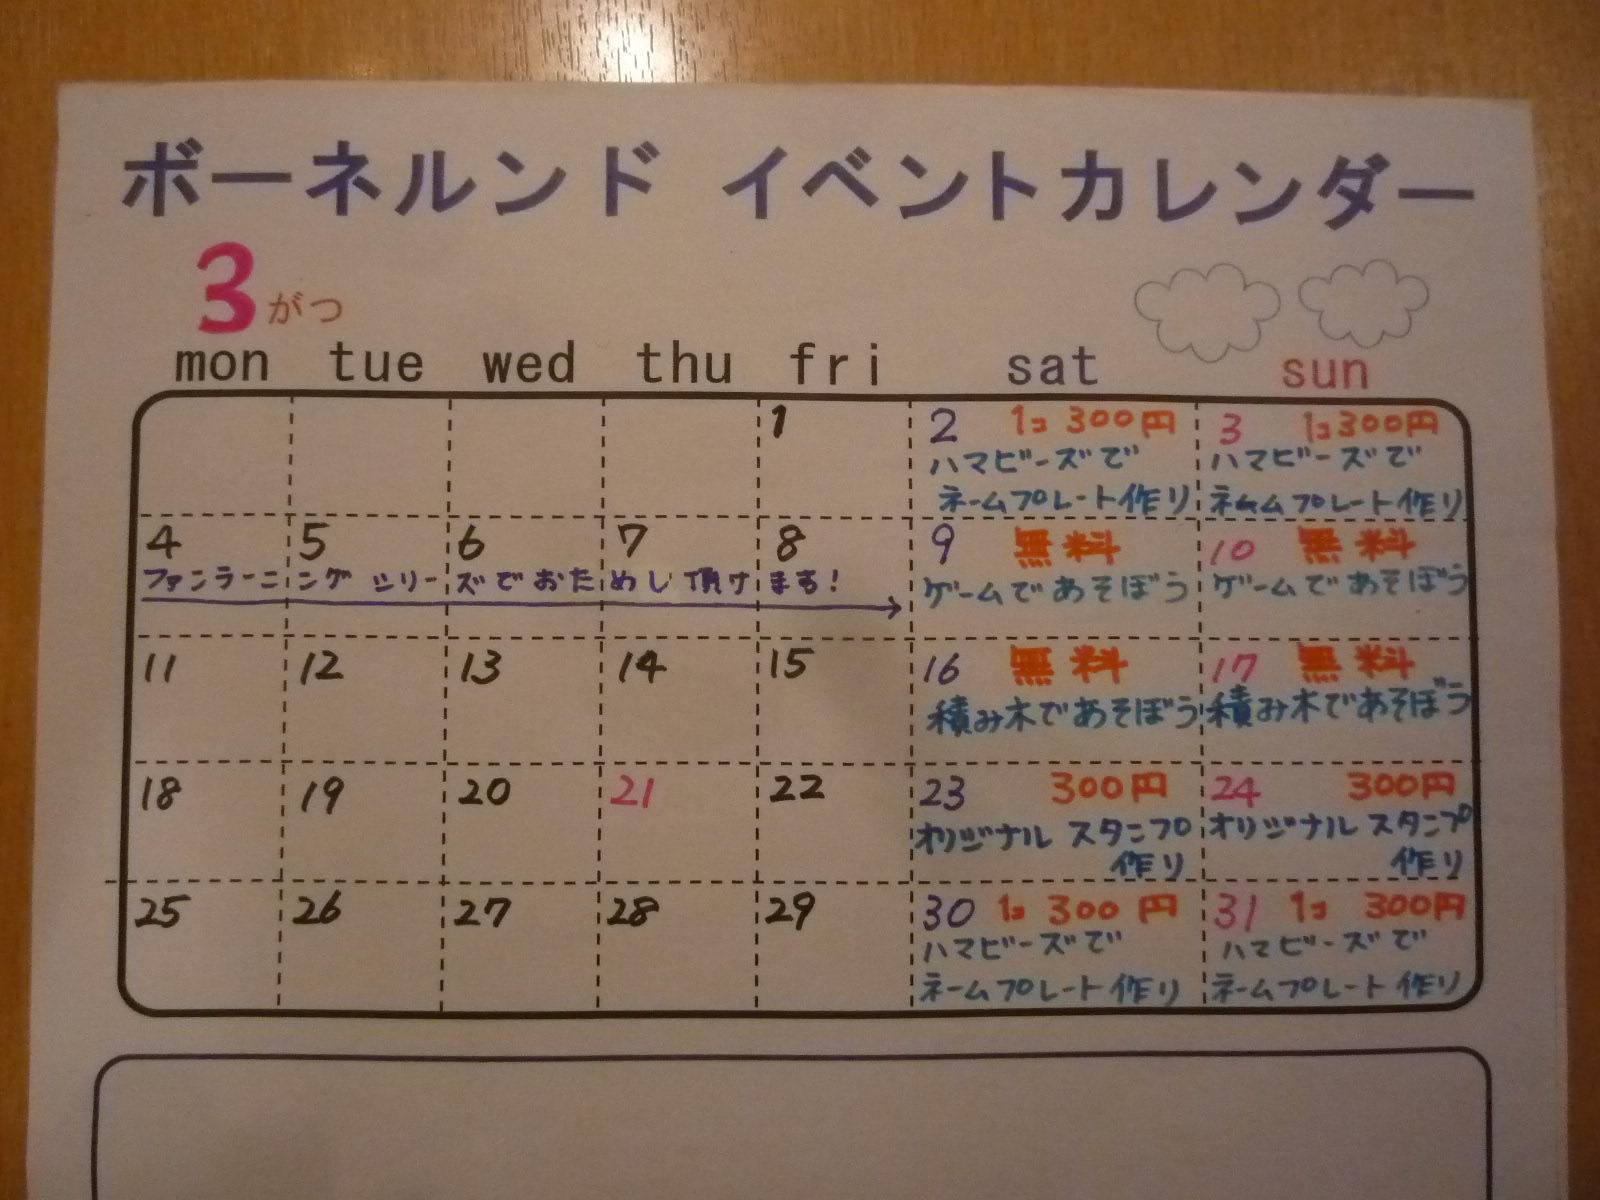 ボーネルンド イベントカレンダー
3がつ
mon tue wed thu fri sat sun
1
2 1コ 300円
ハマビーズで
ネームプレート作り
3 1コ300円
ハマビーズで
ネームプレート作り
4 5 6 7 8
ファンラーニング シリーズでおためし頂けます!
9 無料
ゲームであそぼう
10 無料
ゲームであそぼう
11 12 13 14 15
16 無料
積み木であそぼう
17 無料
積み木であそぼう
18 19 20 21 22
23 300円
オリジナル スタンプ
作り
24 300円
オリジナル スタンプ
作り
25 26 27 28 29
30 1コ 300円
ハマビーズで
ネームプレート作り
31 1コ 300円
ハマビーズで
ネームプレート作り